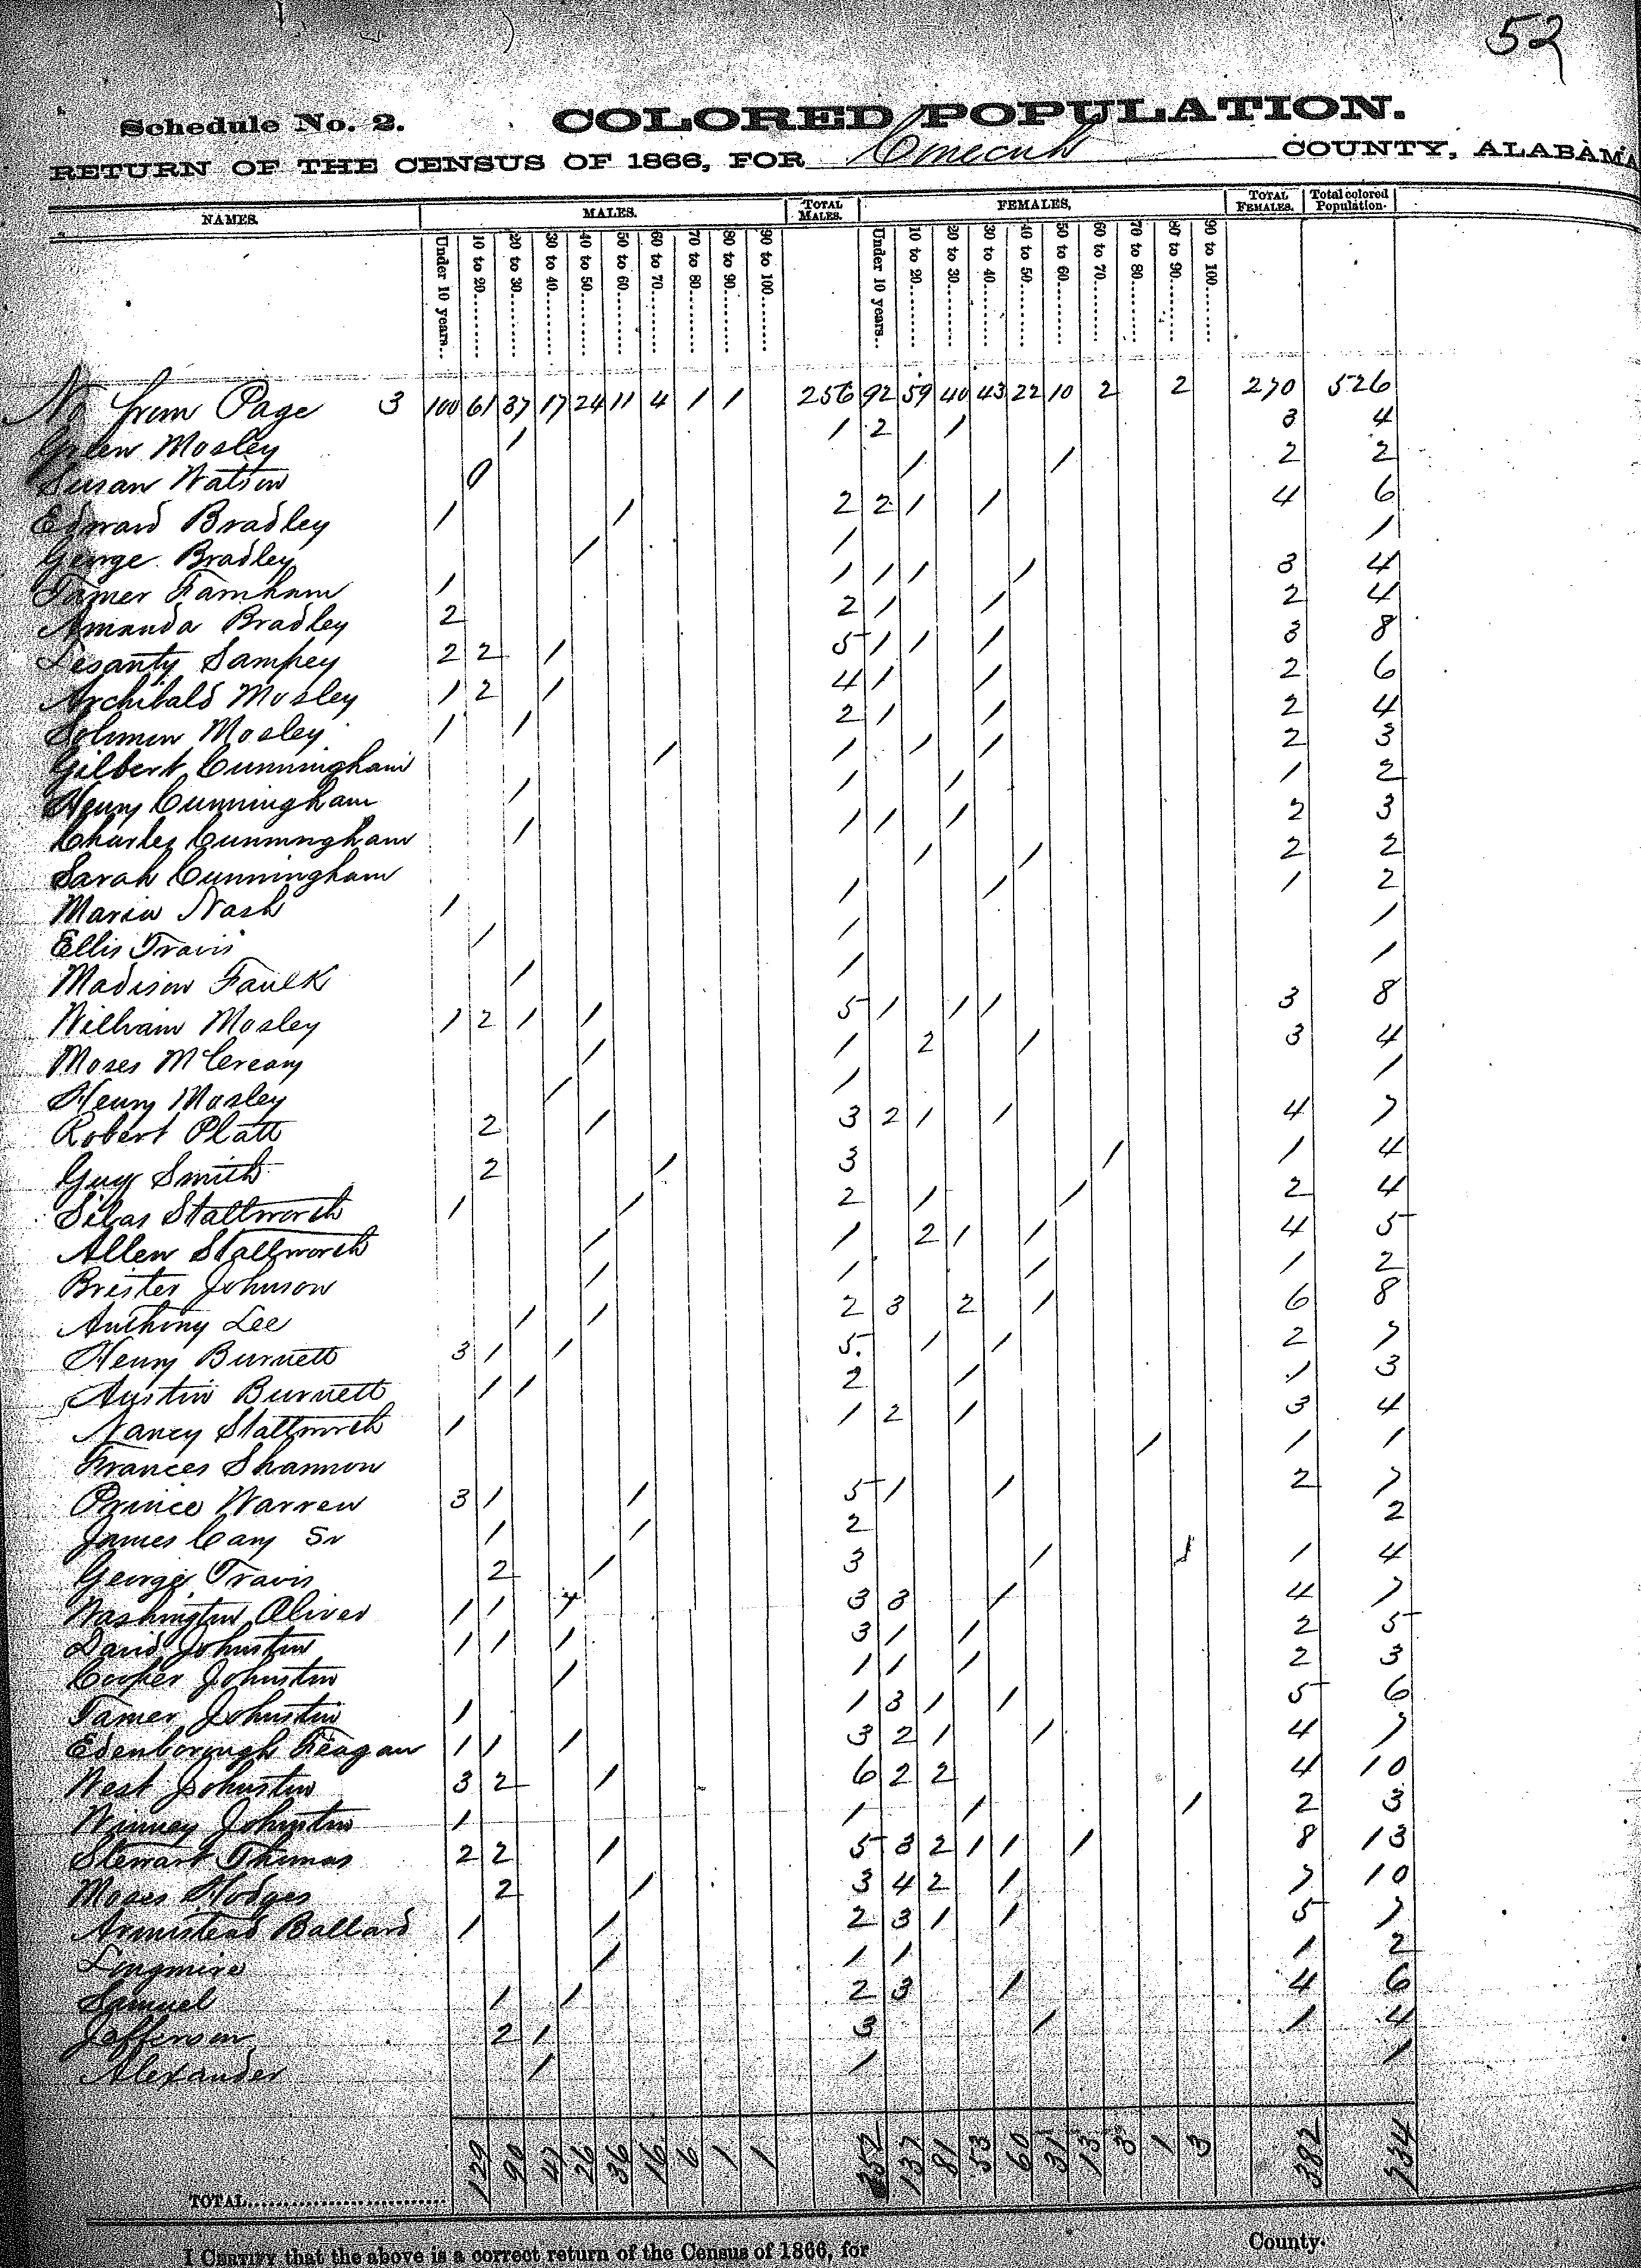 52
Schedule No. 2. COLORED POPULATION.
RETURN OF THE CENSUS OF 1866, FOR Conecuh COUNTY, ALABAMA
NAMES. MALES. TOTAL MALES. FEMALES, TOTAL FEMALES. Total colored Population.
Under 10 years.. 10 to 20 20 to 30 30 to 40 40 to 50 50 to 60 60 to 70 70 to 80 80 to 90 90 to 100 Under 10 years.. 10 to 20 20 to 30 30 to 40 40 to 50 50 to 60 60 to 70 70 to 80 80 to 90 90 to 100
No from Page 3 100 61 37 17 24 11 4 1 1 256 92 59 40 43 22 10 2 2 270 526
Green Mosley 1 1 2 1 3 4
Susan Watson 1 1 2 2
Edward Bradley 1 1 2 2 1 1 4 6
George Bradley 1 1 1
Tamer Farnham 1 1 1 1 1 3 4
Amanda Bradley 2 2 1 1 2 4
Lesanty Sampey 2 2 1 5 1 1 1 3 8
Archibald Mosley 1 2 1 4 1 1 2 6
Solomon Mosley 1 1 2 1 1 2 4
Gilbert Cunningham 1 1 1 1 2 3
Henry Cunningham 1 1 1 1 2
Charles Cunningham 1 1 1 1 2 3
Sarah Cunningham 1 1 2 2
Maria Nash 1 1 1 1 2
Ellis Travis 1 1 1
Madison Faulk 1 1 1
William Mosley 1 2 1 1 5 1 1 1 3 8
Moses McCreary 1 1 2 1 3 4
Henry Mosley 1 1 1
Robert Platt 2 1 3 2 1 1 4 7
Guy Smith 2 1 3 1 1 4
Silas Stallworth 1 1 2 1 1 2 4
Allen Stallworth 1 1 2 1 1 4 5
Brister Johnson 1 1 1 1 2
Anthony Lee 1 1 2 3 2 1 6 8
Henry Burnett 3 1 1 5 1 1 2 7
Austin Burnett 1 1 2 1 1 3
Nancy Stallworth 1 1 2 1 3 4
Frances Shannon 1 1 1
Prince Warren 3 1 1 5 1 1 2 7
James Cary Sr 1 1 2 2
George Travis 2 1 3 1 1 4
Washington Oliver 1 1 1 3 3 1 4 7
David Johnston 1 1 1 3 1 1 2 5
Cooper Johnston 1 1 1 1 2 3
Tamer Johnston 1 1 3 1 1 5 6
Edenborough Feagan 1 1 1 3 2 1 1 4 7
West Johnston 3 2 1 6 2 2 4 10
Winney Johnston 1 1 1 1 2 3
Stewart Thomas 2 2 1 5 3 2 1 1 1 8 13
Moses Hodges 2 1 3 4 2 1 7 10
Armistead Ballard 1 1 2 3 1 1 5 7
Longmire 1 1 1 1 2
Samuel 1 1 2 3 1 4 6
Jefferson 2 1 3 1 1 4
Alexander 1 1 1
TOTAL 129 90 47 26 36 16 6 1 1 352 137 81 53 60 31 13 3 1 3 382 734
I CERTIFY that the above is a correct return of the Census of 1866, for County.